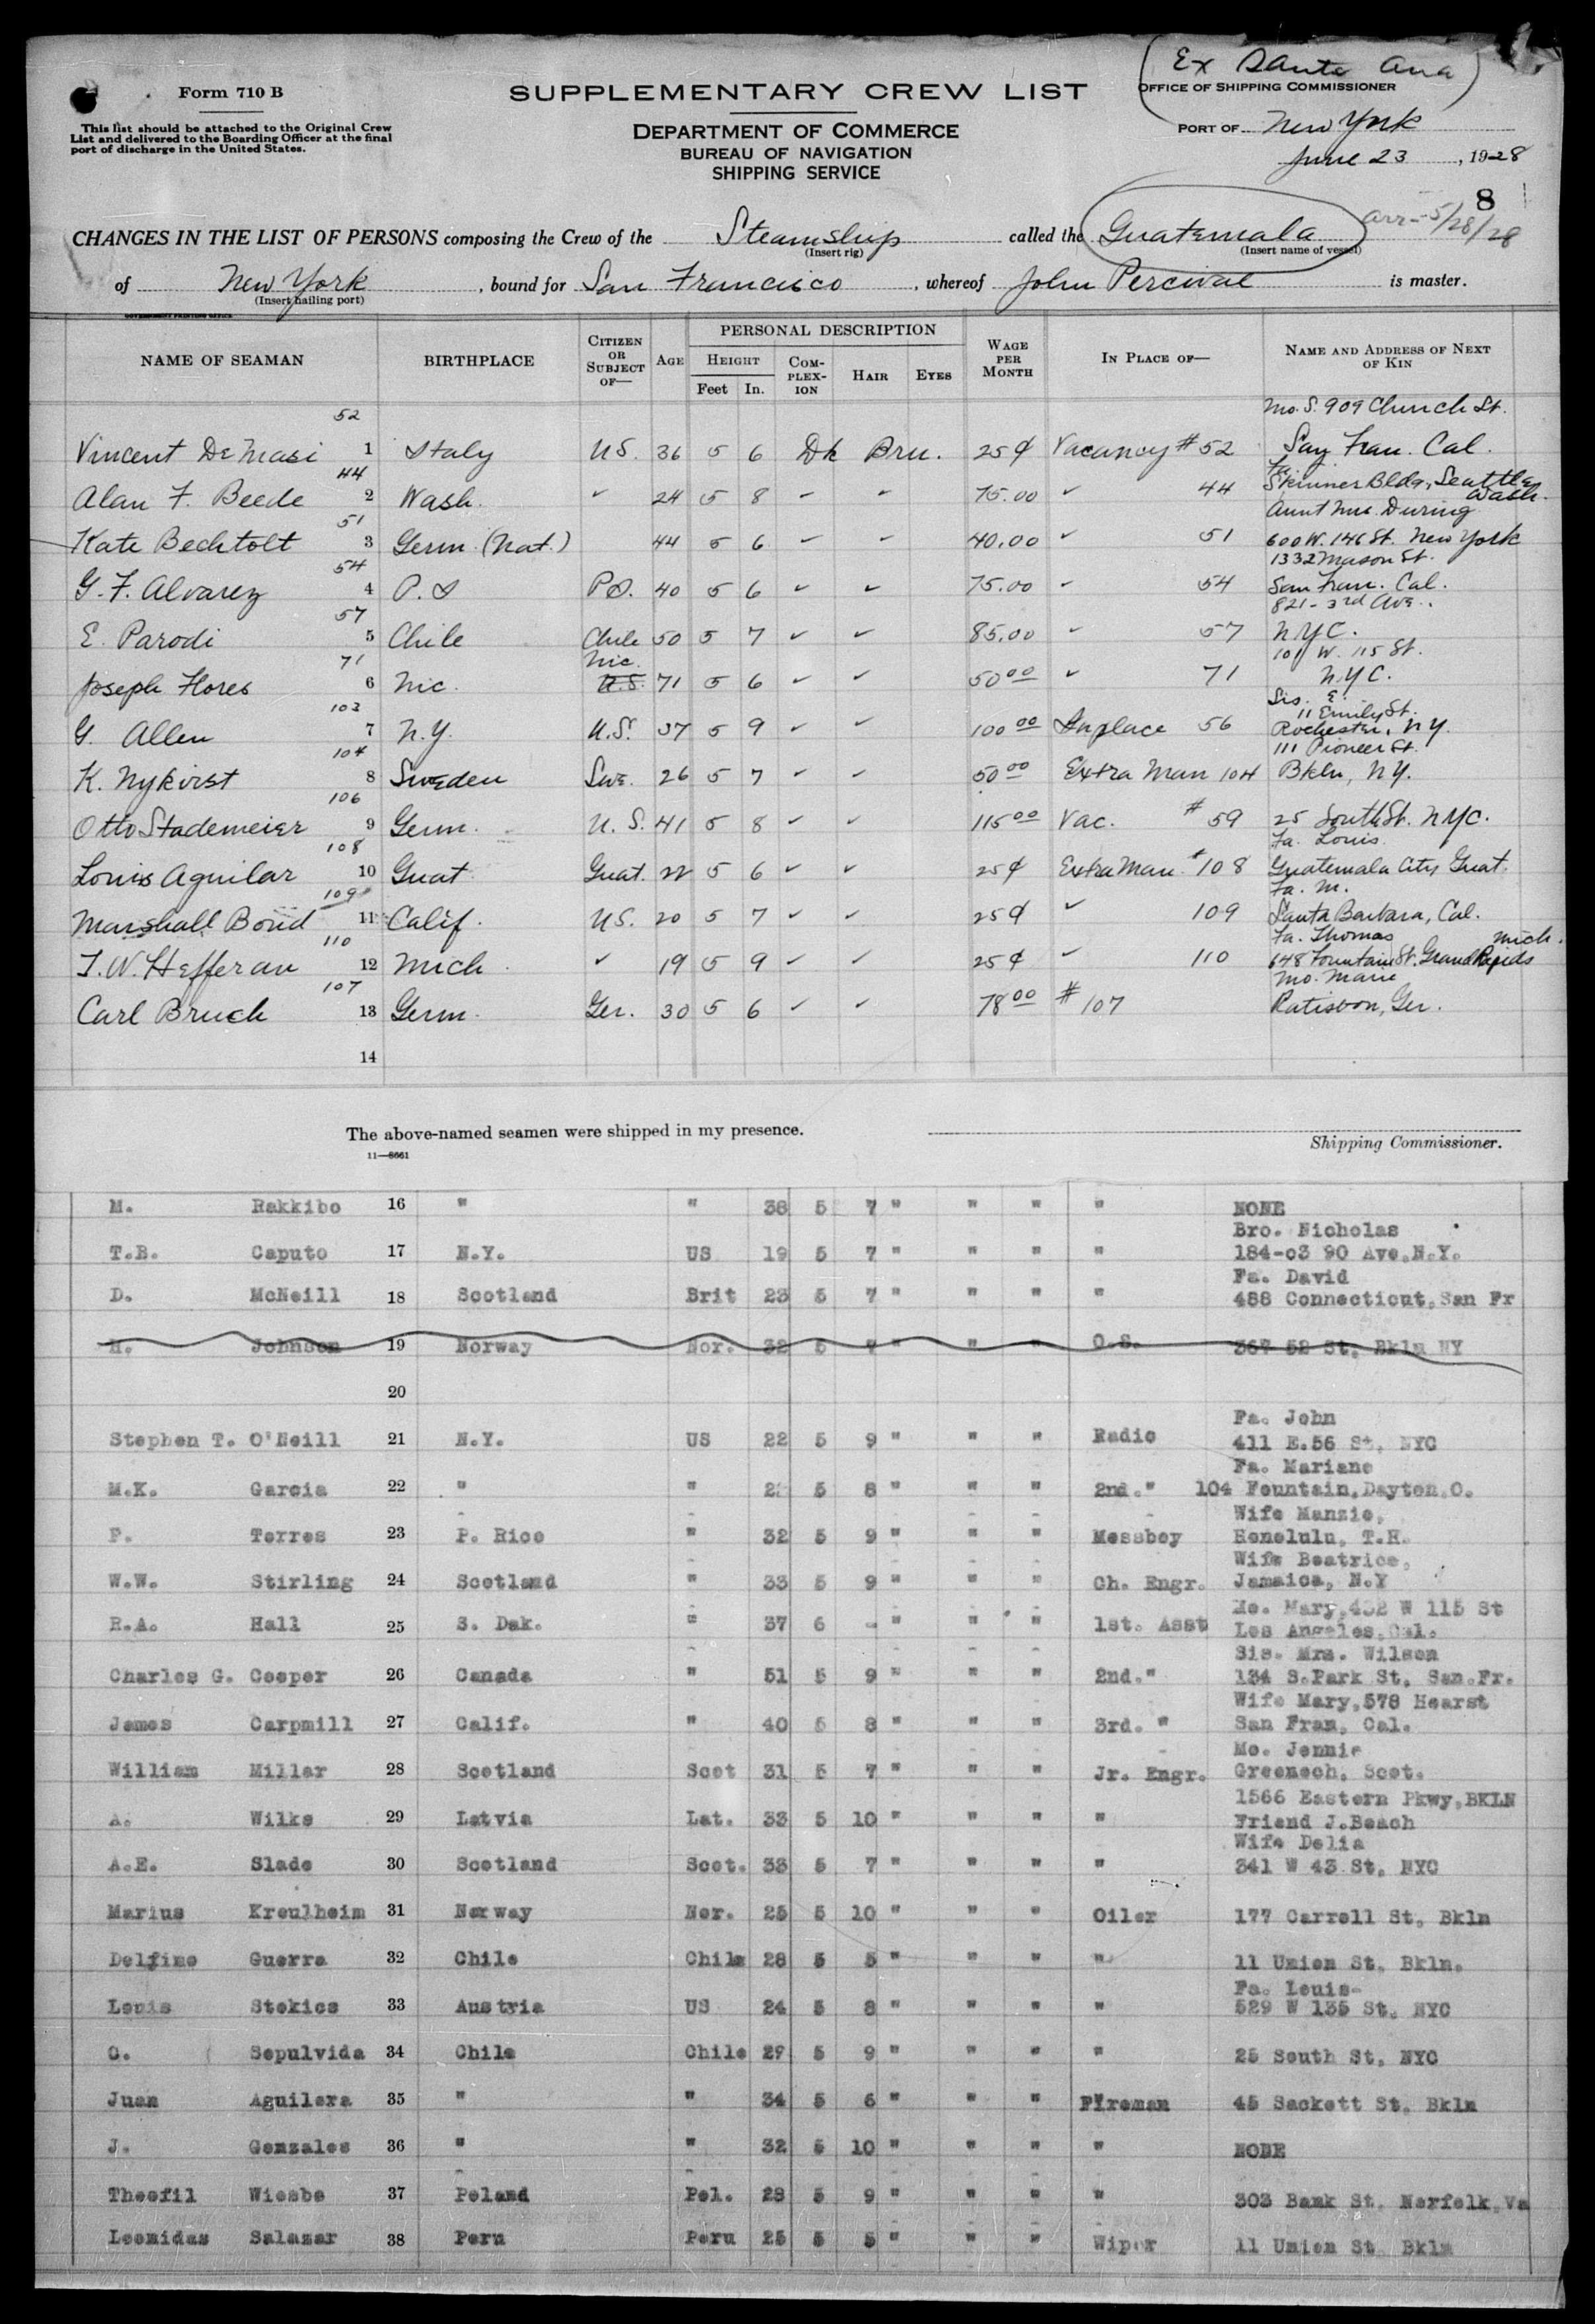 (Ex Santa Ana)
Form 710 B
SUPPLEMENTARY CREW LIST
OFFICE OF SHIPPING COMMISSIONER
This list should be attached to the Original Crew
List and delivered to the Boarding Officer at the final
port of discharge in the United States.
DEPARTMENT OF COMMERCE
BUREAU OF NAVIGATION
SHIPPING SERVICE
PORT OF New York
June 23, 1928
8
arr- 5/28/28
CHANGES IN THE LIST OF PERSONS composing the Crew of the Steamship called the Guatemala
(Insert rig) (Insert name of vessel)
of New York, bound for San Francisco, whereof John Percival is master.
(Insert hailing port)
GOVERNMENT PRINTING OFFICE
NAME OF SEAMAN BIRTHPLACE CITIZEN OR SUBJECT OF— AGE PERSONAL DESCRIPTION WAGE PER MONTH IN PLACE OF— NAME AND ADDRESS OF NEXT OF KIN
HEIGHT COMPLEXION HAIR EYES
Feet In.
52 Mo. S. 909 Church St.
Vincent DeMasi 1 Italy US. 36 5 6 Dk Brn. 25¢ Vacancy #52 San Fran. Cal.
44 Fa.
Alan F. Beede 2 Wash. ✓ 24 5 8 ✓ ✓ 75.00 ✓ 44 Skinner Bldg, Seattle, Wash.
51 Aunt Mrs. During
Kate Bechtolt 3 Germ. (Nat.) 44 5 6 ✓ ✓ 40.00 ✓ 51 600 W. 146 St. New York
54 1332 Mason St.
G. F. Alvarez 4 P.I P.I. 40 5 6 ✓ ✓ 75.00 ✓ 54 San Fran. Cal.
57 821 - 3rd Ave.
E. Parodi 5 Chile Chile 50 5 7 ✓ ✓ 85.00 ✓ 57 NYC.
71 Nic. 101 W. 115 St.
Joseph Flores 6 Nic. U.S. 71 5 6 ✓ ✓ 50 00 ✓ 71 N.Y.C.
103 Sis. E.
11 Emily St.
G. Allen 7 N.Y. U.S. 37 5 9 ✓ ✓ 100 00 In place 56 Rochester, N.Y.
104 111 Pioneer St.
K. Nykvist 8 Sweden Swe. 26 5 7 ✓ ✓ 50 00 Extra Man 104 Bkln, N.Y.
106
Otto Stademeier 9 Germ. U.S. 41 5 8 ✓ ✓ 115 00 Vac. #59 25 South St. NYC.
108 Fa. Louis
Louis Aguilar 10 Guat. Guat. 22 5 6 ✓ ✓ 25¢ Extra Man #108 Guatemala City Guat.
109 Fa. M.
Marshall Bond 11 Calif. US. 20 5 7 ✓ ✓ 25¢ ✓ 109 Santa Barbara, Cal.
110 Fa. Thomas
T. W. Hefferan 12 Mich. ✓ 19 5 9 ✓ ✓ 25¢ ✓ 110 648 Fountain St. Grand Rapids Mich.
107 Mo. Marie
Carl Bruch 13 Germ. Ger. 30 5 6 ✓ ✓ 78 00 #107 Ratisbon, Ger.
14
The above-named seamen were shipped in my presence.
11—8661
Shipping Commissioner.
M. Rakkibo 16 " " 38 5 7 " " " " NONE
Bro. Nicholas
T.B. Caputo 17 N.Y. US 19 5 7 " " " " 184-03 90 Ave,N.Y.
Fa. David
D. McNeill 18 Scotland Brit 23 5 7 " " " " 488 Connecticut,San Fr
H. Johnson 19 Norway Nor. 32 5 7 " " " O.S. 367 52 St, Bkln NY
20
Fa. John
Stephen T. O'Neill 21 N.Y. US 22 5 9 " " " Radio 411 E.56 St, NYC
Fa. Mariano
M.K. Garcia 22 " " 5 8 " " " 2nd." 104 Fountain,Dayton,O.
Wife Manzie,
F. Torres 23 P. Rico " 32 5 9 " " " Messboy Honolulu, T.H.
Wife Beatrice,
W.W. Stirling 24 Scotland " 33 5 9 " " " Ch. Engr. Jamaica, N.Y
Mo. Mary,432 W 115 St
R.A. Hall 25 S. Dak. " 37 6 - " " " 1st. Asst Los Angeles,Cal.
Sis. Mrs. Wilson
Charles G. Cooper 26 Canada " 51 5 9 " " " 2nd." 134 S.Park St, San.Fr.
Wife Mary,578 Hearst
James Carpmill 27 Calif. " 40 5 8 " " " 3rd. " San Fran, Cal.
Mo. Jennie
William Millar 28 Scotland Scot 31 5 7 " " " Jr. Engr. Greenoch, Scot.
1566 Eastern Pkwy,BKLN
A. Wilks 29 Latvia Lat. 33 5 10 " " " " Friend J.Beach
Wife Delia
A.E. Slade 30 Scotland Scot. 33 5 7 " " " " 341 W 43 St, NYC
Marius Kreulheim 31 Norway Nor. 25 5 10 " " " Oiler 177 Carroll St, Bkln
Delfino Guerra 32 Chile Chile 28 5 5 " " " " 11 Union St, Bkln.
Fa. Louis-
Louis Stokics 33 Austria US 24 5 8 " " " " 529 W 135 St, NYC
O. Sepulvida 34 Chile Chile 29 5 9 " " " " 25 South St, NYC
Juan Aguilera 35 " " 34 5 6 " " " Fireman 45 Sackett St, Bkln
J. Gonzales 36 " " 32 5 10 " " " " NONE
Theofil Wiosbe 37 Poland Pol. 28 5 9 " " " " 303 Bank St, Norfolk,Va
Leonidas Salazar 38 Peru Peru 25 5 5 " " " Wiper 11 Union St Bkln